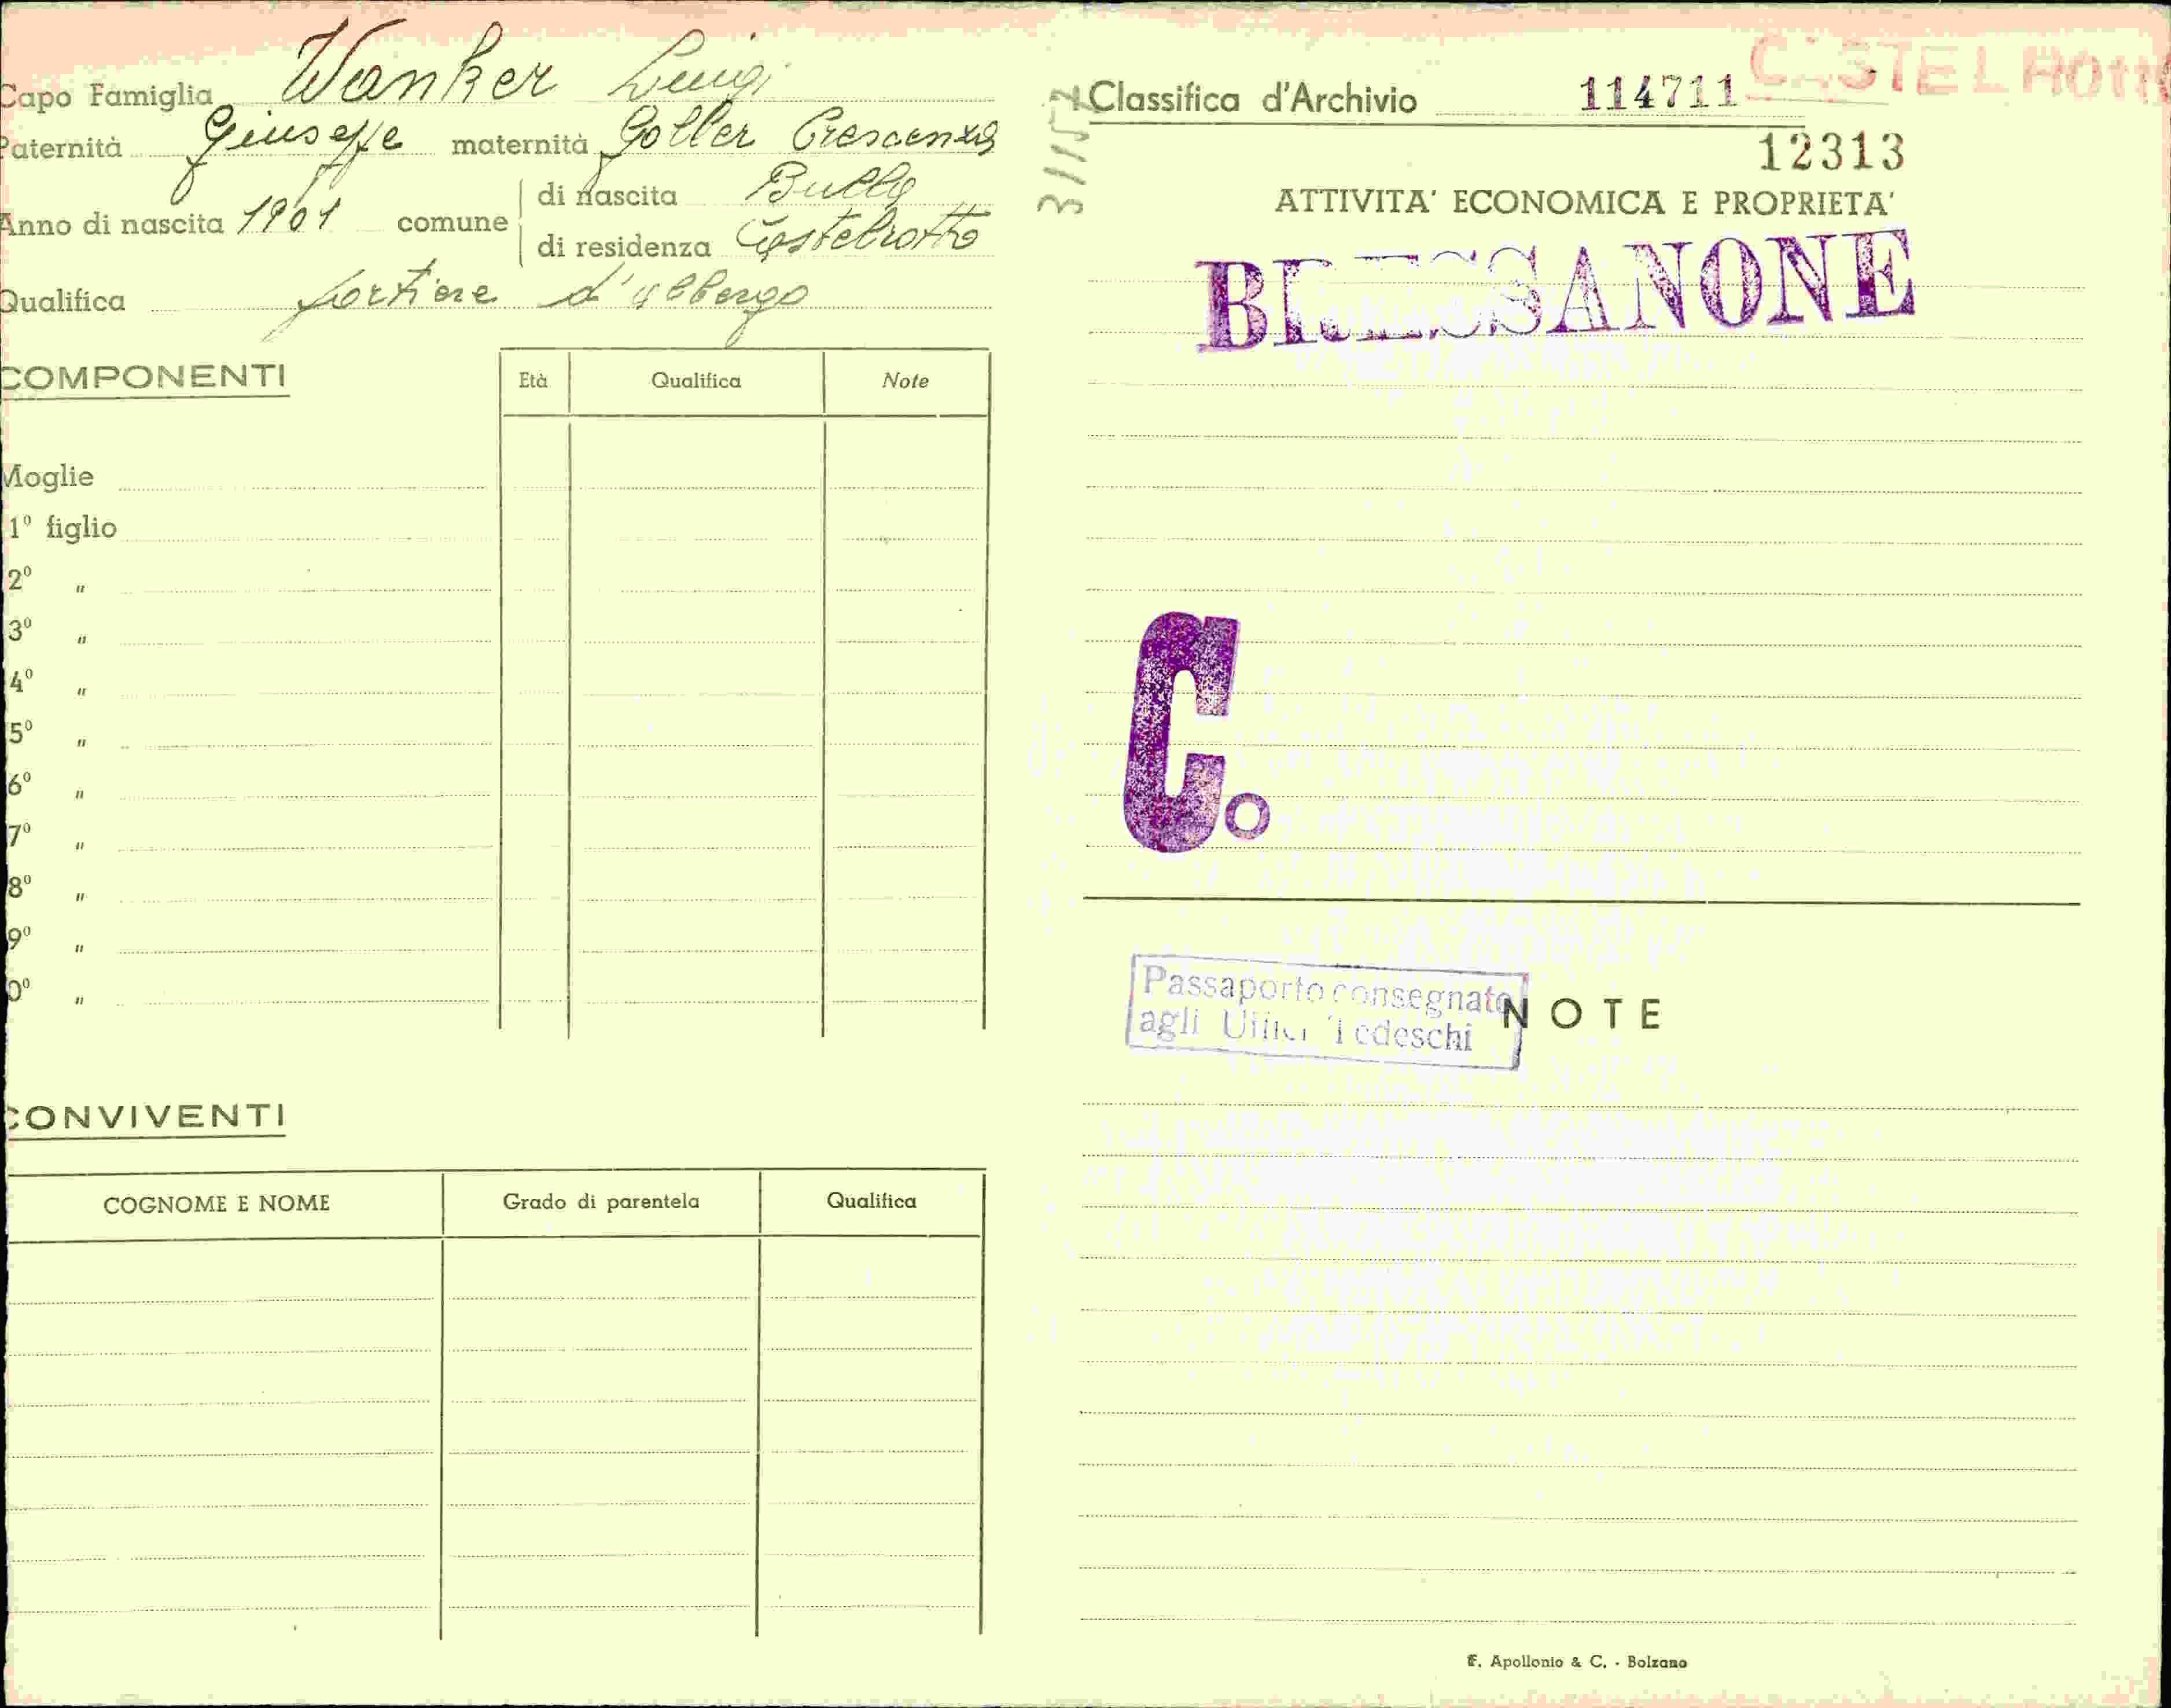 Capo Famiglia Wanker Luigi
Paternità Giuseppe maternità Goller Crescenza
Anno di nascita 1901 comune di nascita Bulla
di residenza Castelrotto
Qualifica portiere d'albergo
COMPONENTI Età Qualifica Note
Moglie
1° figlio
2° "
3° "
4° "
5° "
6° "
7° "
8° "
9° "
0° "
CONVIVENTI
COGNOME E NOME Grado di parentela Qualifica
CASTELROTTO
311157
Classifica d'Archivio 114711
12313
ATTIVITA' ECONOMICA E PROPRIETA'
BRESSANONE
C.
Passaporto consegnato
agli Uffici Tedeschi
NOTE
F. Apollonio & C. - Bolzano